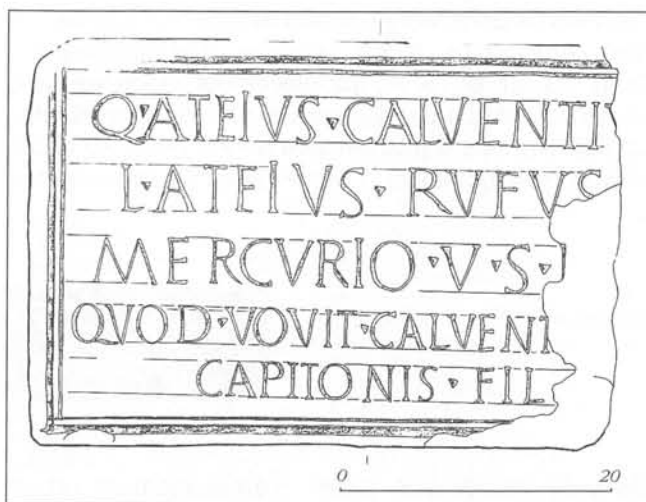 Q·ATEIVS·CALVENTI
L·ATEIVS·RVFVS
MERCVRIO·V·S·
QVOD·VOVIT·CALVENI
CAPITONIS·FIL
0 20